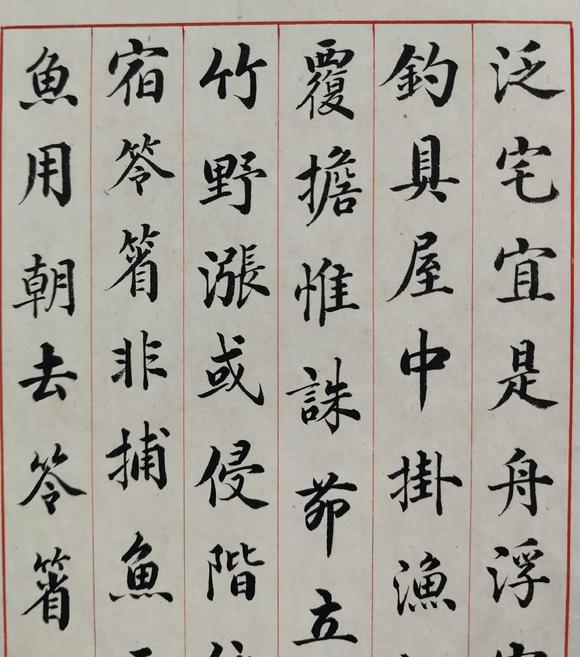 泛宅宜是舟浮
釣具屋中掛漁
覆擔惟誅茆立
竹野漲或侵階
宿笭箵非捕魚
魚用朝去笭箵